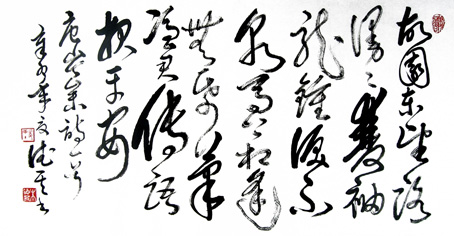 故園東望路
漫々雙袖
龍鍾淚不
乾馬上相逢
無帋筆
憑君傳語
報平安
唐岑參詩一首
辛卯年夏